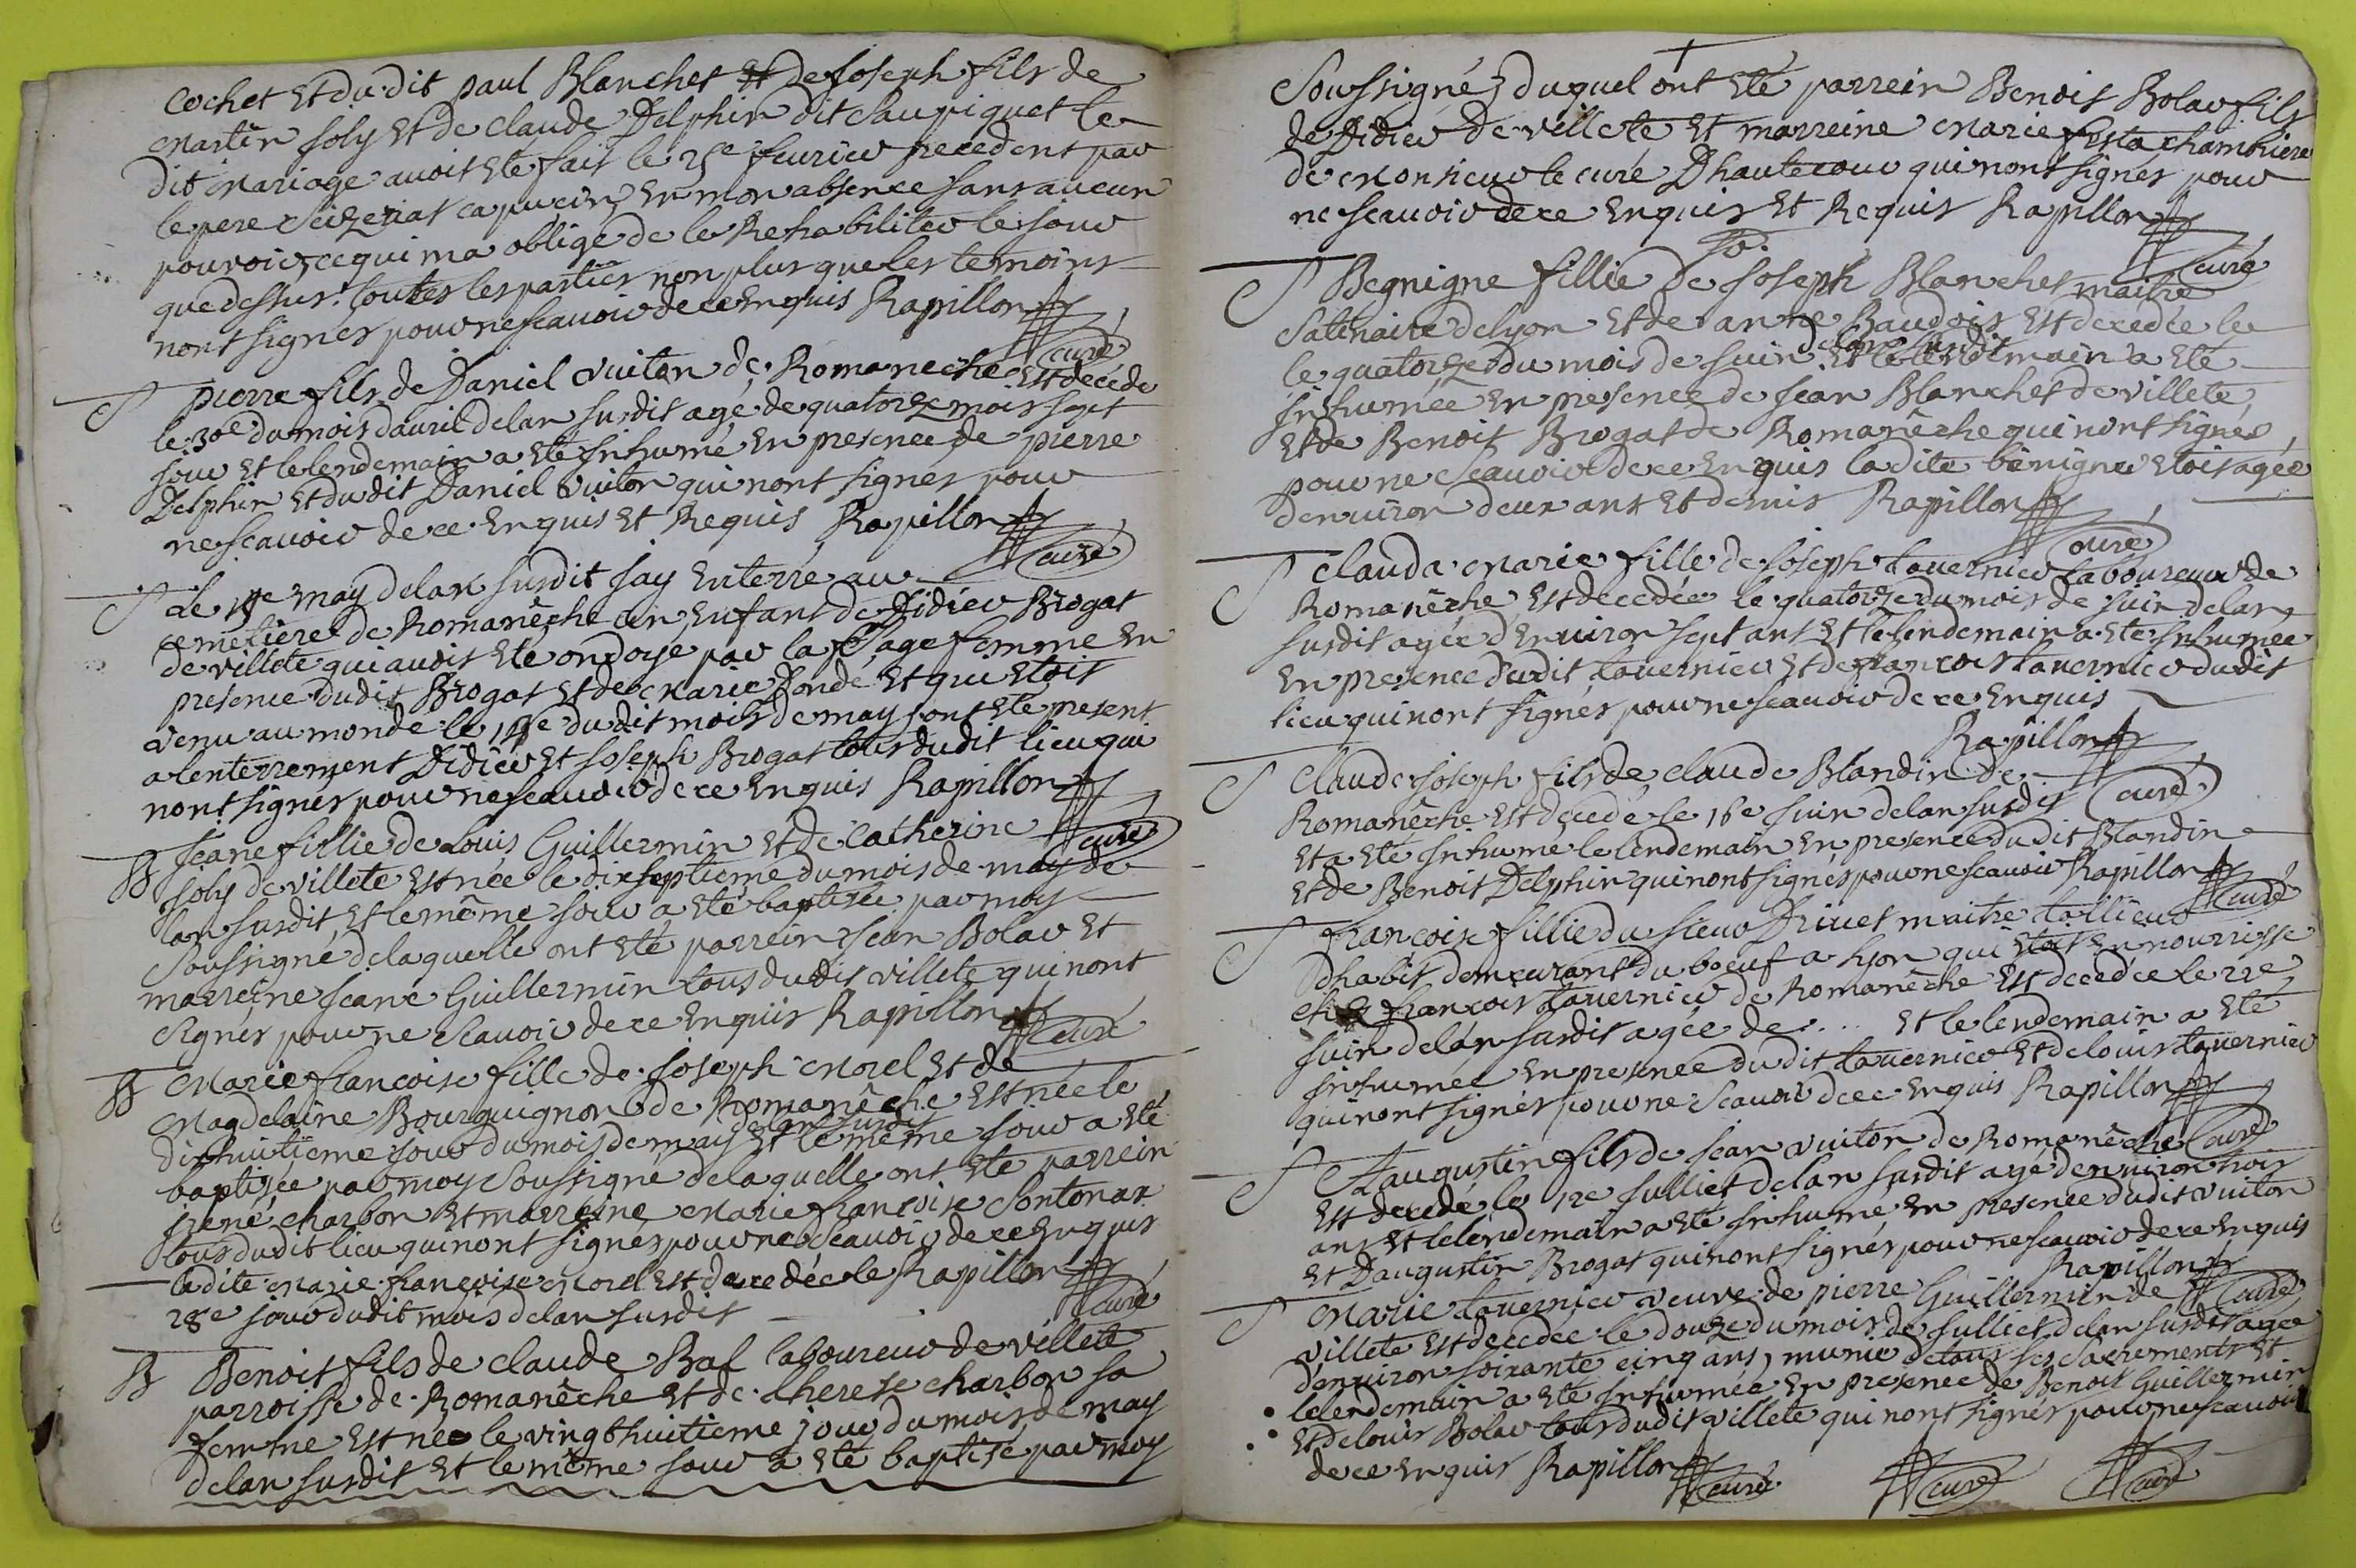 cochet et du dit paul Blanchet et de Joseph fils de
martin Joly et de claude Delphin dit Saupiquet le
dit mariage avoit ete fait le 25e feurier precedent par
le pere capucin en mon absence sans aucun
pouvoir, ce qui ma obligé de le Rehabiliter le jour
que dessus. toutes les parties non plus que les temoins
nont signés pour ne scauoir de ce enquis Rapillon
curé
S pierre fils de Daniel vuiton de Romanêche est decédé
le 30e du mois dauril delan susdit agé de quatorze mois sept
jour et le lendemain a ete Inhumé en presence de pierre
Delphin et du dit Daniel vuiton qui nont signés pour
ne scauoir de ce enquis et Requis Rapillon
curé
S Le may delan susdit jay enterré au
cemetiere de Romanêche un enfant de Didier Brogat
de villete qui auoit ete ondoyé par la sage femme en
presence dudit Brogat et de marie Jonde et qui etoit
venu au monde le dudit mois de may sont ete present
a lenterrement Didier et Joseph Brogat tous dudit lieu qui
nont signés pour ne scauoir de ce enquis Rapillon
curé
B Jeane fillie de Louis Guillermin et de Catherine
Joly de villete est née le dixseptieme du mois de may de
lan susdit, et le même jour a eté baptisée par moy
Soussigné delaquelle ont eté parrein Jean Bolar et
marreine Jeane Guillermin tous dudit villete qui nont
signés pour ne scauoir de ce enquis Rapillon
curé
B Marie francoise fille de Joseph morel et de
Magdelaine Bourguignon de Romanêche est née le
delan susdit
dixhuitieme jour du mois de may et le même jour a eté
baptisée par moy Soussigné delaquelle ont ete parrein
Jrené charbon et marreine marie francoise Sontonax
tous dudit lieu qui nont signés pour ne scauoir de ce enquis
ladite marie françoise morel est decedée le Rapillon
28e jour dudit mois delan susdit curé
B Benoit fils de claude Baf laboureur de villete
parroisse de Romanêche et de therese charbon sa
femme est né le vingthuitieme jour du mois de may
delan susdit et le même jour a eté baptisé par moy
Soussigné, duquel ont eté parrein Benoit Bolar fils
de Didier de villete et marreine marie festa chambriere
de monsieur le curé Dhautecour qui nont signés pour
ne scauoir de ce enquis et Requis Rapillon
curé
S Begnigne fillie de Joseph Blanchet maitre
Satinaire de lyon et de anne Baudois est decedée le
delan susdit
le quatorze du mois de Juin et le lendemain a eté
Inhumée en presence de Jean Blanchet de villete,
et de Benoit Brogat de Romanêche qui nont signés,
pour ne scauoir de ce enquis ladite bénigne etoit agée
denuiron deux ans et demis Rapillon
curé
S Clauda marie fille de Joseph tauernier laboureur de
Romanêche est decedée le quatorze du mois de Juin delan
susdit agée denuiron sept ans et le lendemain a ete Inhumée
en presence dudit tauernier et de francois tauernier dudit
lieu qui nont signés pour ne scauoir de ce enquis
Rapillon
S Claude Joseph fils de claude Blandin de
Romanêche est decedé le 16e Juin delan susdit curé
et a ete Inhumé le lendemain en presence dudit Blandin
et de Benoit Delphin qui nont signés pour ne scauoir Rapillon
curé
S françoise fillie du sieur Driuet maitre tallieur
dhabit demeurant du boeuf a lyon qui etoit en nourrisse
chez francois tauernier de Romanêche est decedée le 22e
Juin delan susdit agée de ... et le lendemain a ete
Inhumée en presence dudit tauernier et de louis tauernier
qui nont signés pour ne scauoir de ce enquis Rapillon
curé
S augustin fils de Jean vuiton de Romanêche
est decedé le 12e Julliet delan susdit agé denuiron trois
ans et le lendemain a eté Inhumé en presence dudit vuiton
et Daugustin Brogat qui nont signés pour ne scauoir de ce enquis
Rapillon
S Marie tauernier veuve de pierre Guillermin de curé
villete est decedée le douze du mois de Julliet delan susdit agée
denuiron soixante cinq ans, munie de tous ses Sacrements et
lelendemain a eté Inhumée en presence de Benoit Guillermin
et de louis Bolar tous dudit villete qui nont signés pour ne scauoir
de ce enquis Rapillon curé curé curé